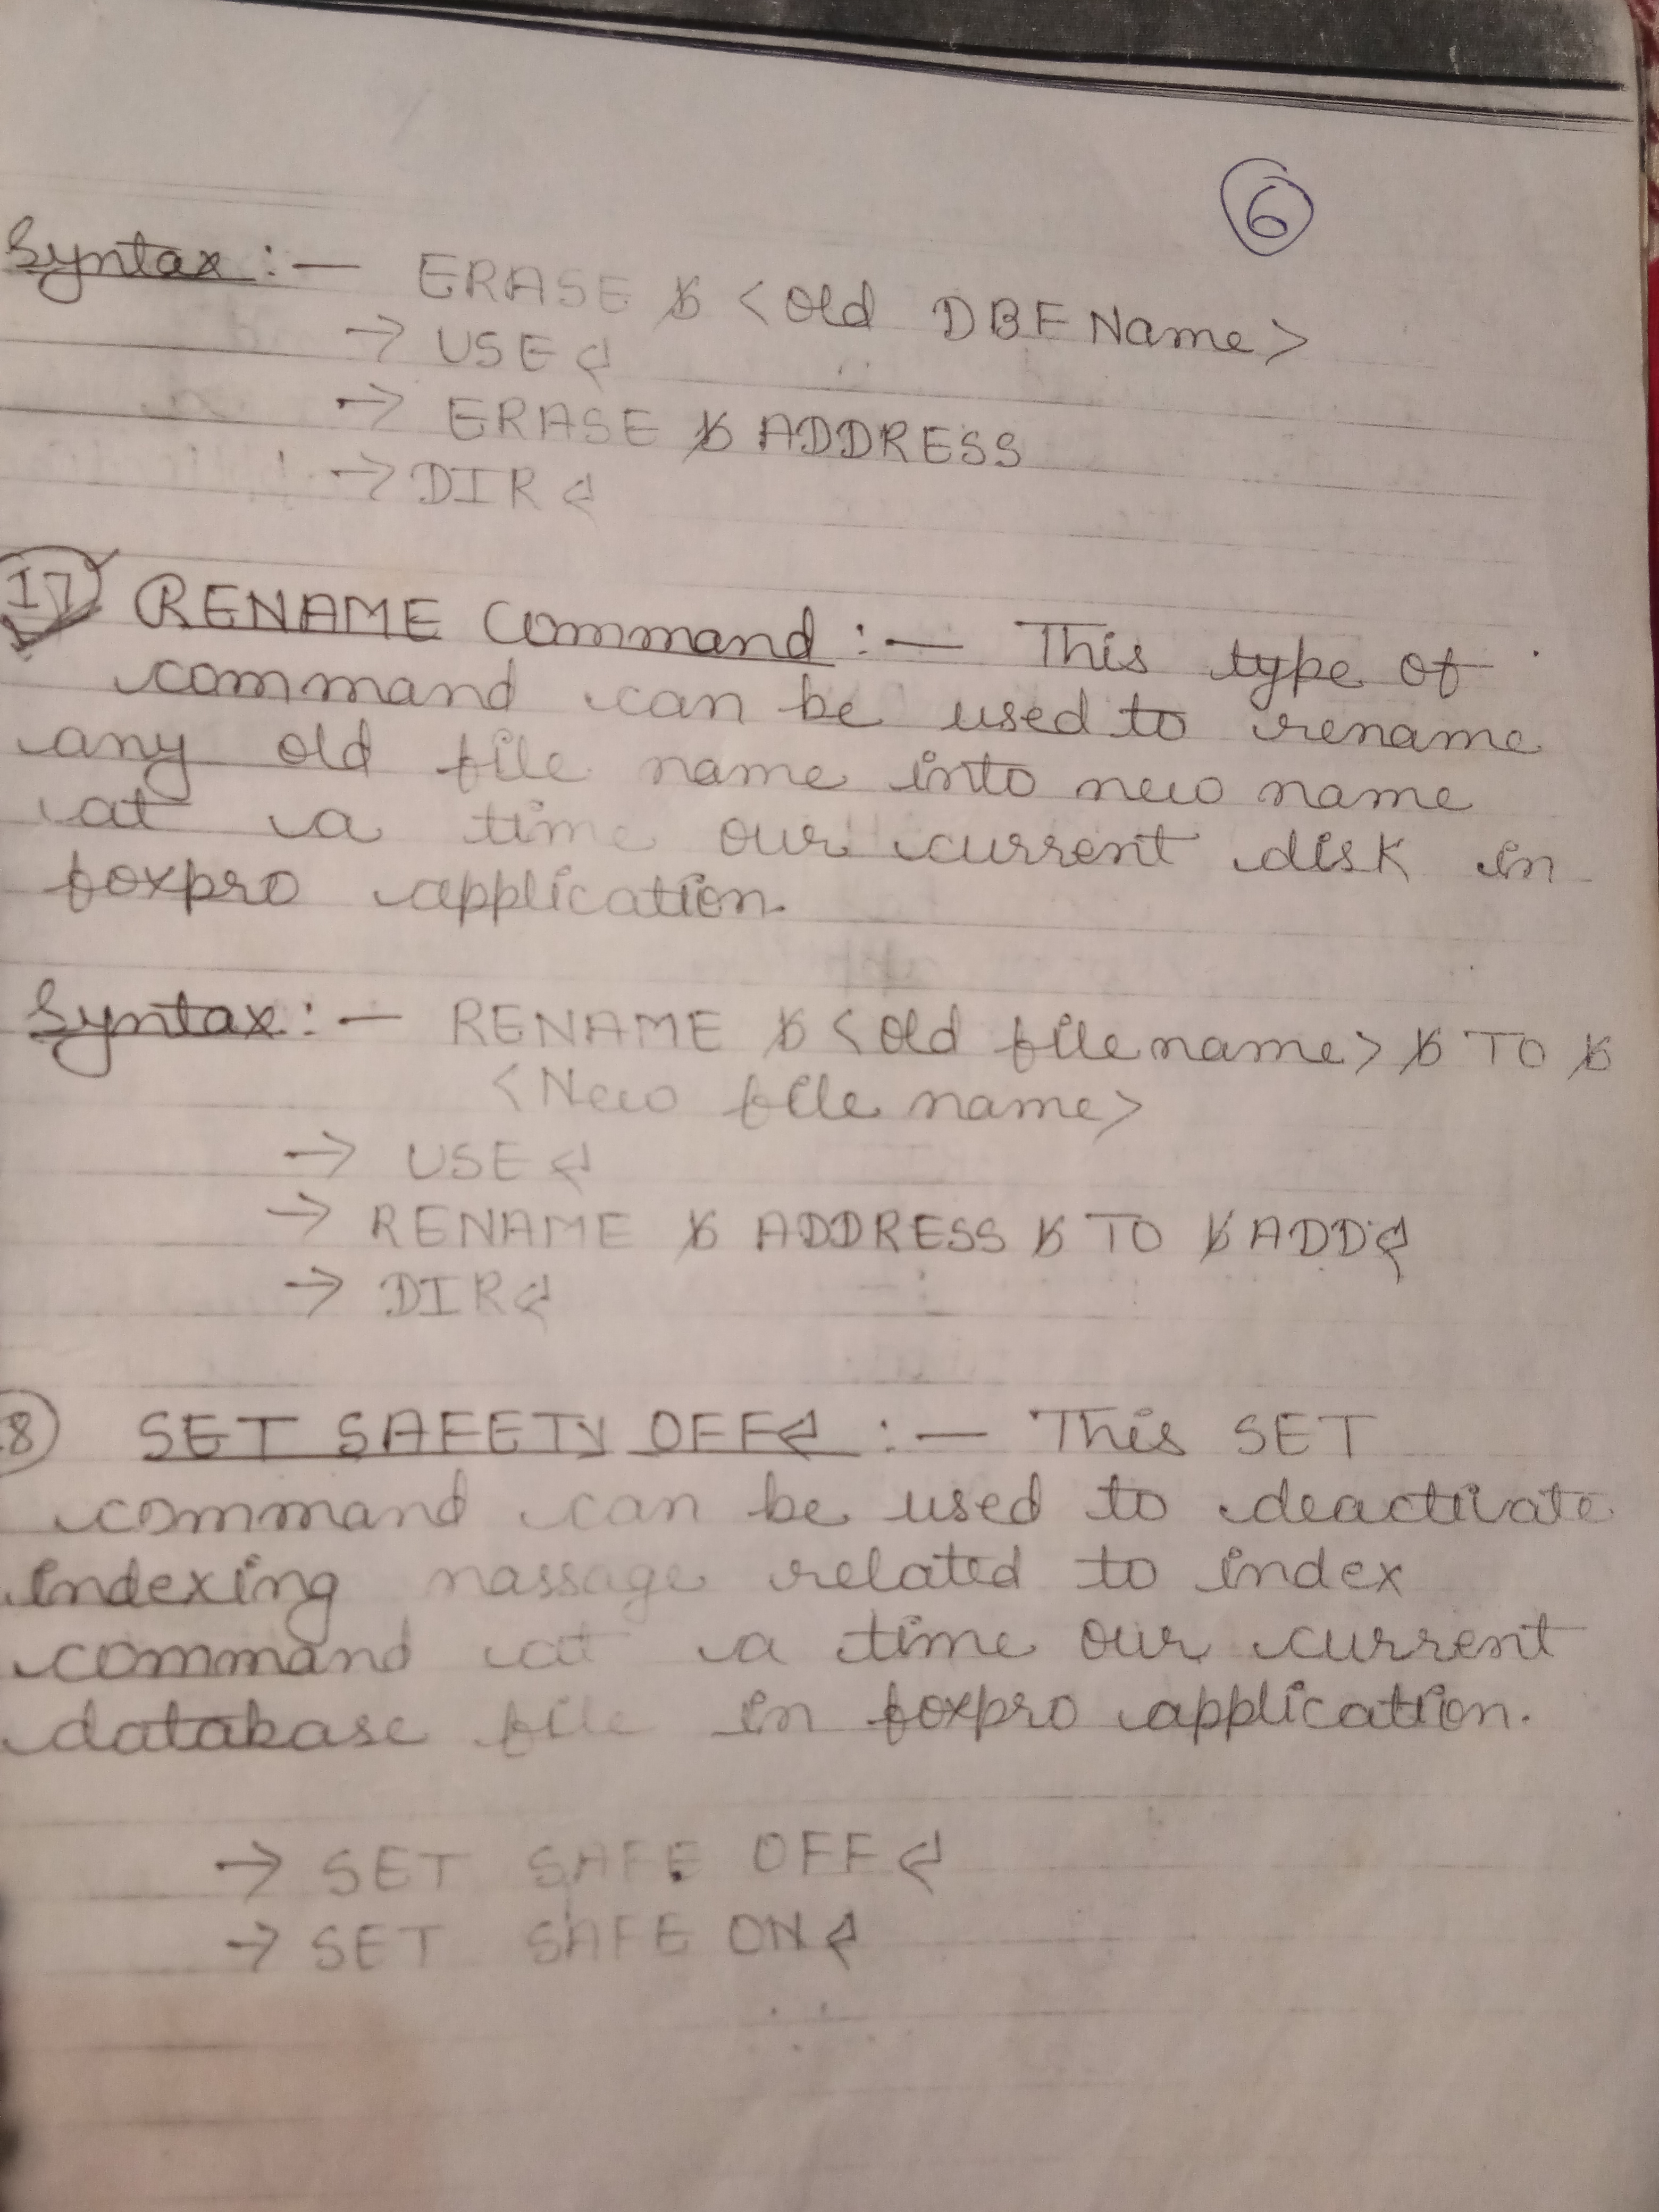 6
Syntax :— ERASE ␢ <Old DBF Name>
→ USE ↵
→ ERASE ␢ ADDRESS
→ DIR ↵
17 RENAME Command :— This type of
command can be used to rename
any old file name into new name
at a time our current disk in
foxpro application.
Syntax :— RENAME ␢ <Old file name> ␢ TO ␢
<New file name>
→ USE ↵
→ RENAME ␢ ADDRESS ␢ TO ␢ ADD ↵
→ DIR ↵
8 SET SAFETY OFF ↵ :— This SET
command can be used to deactivate
indexing massage related to index
command at a time our current
database file in foxpro application.
→ SET SAFE OFF ↵
→ SET SAFE ON ↵